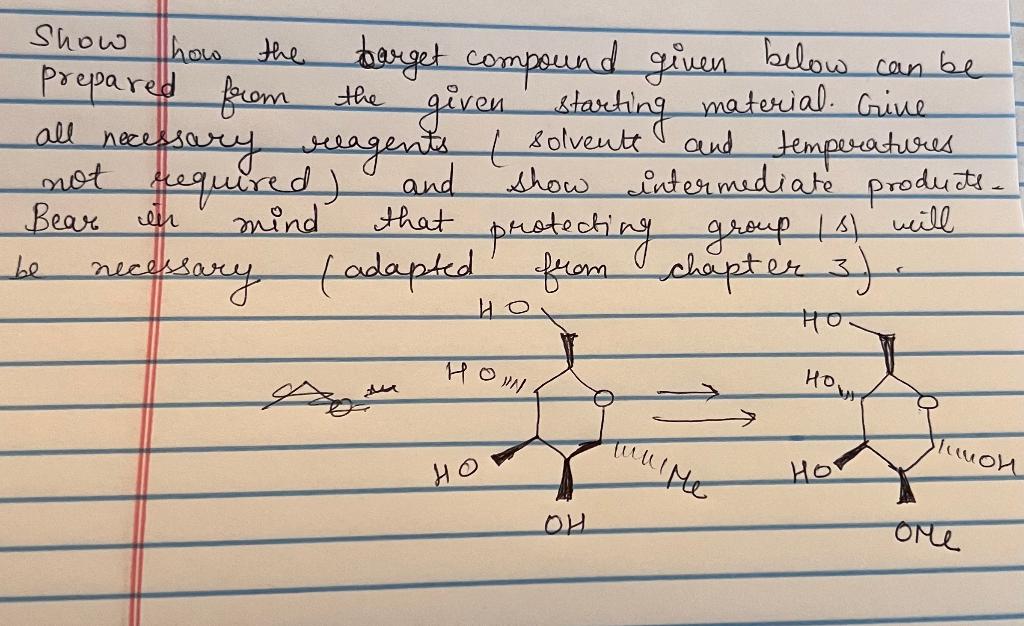 Show how the target compound given below can be
prepared from the given starting material. Give
all necessary reagents ( solvents and temperatures
not required ) and show intermediate products.
Bear in mind that protecting group (s) will
be necessary ( adapted from chapter 3 ).
HO HO
HO O HO O
HO Me HO OH
OH OMe